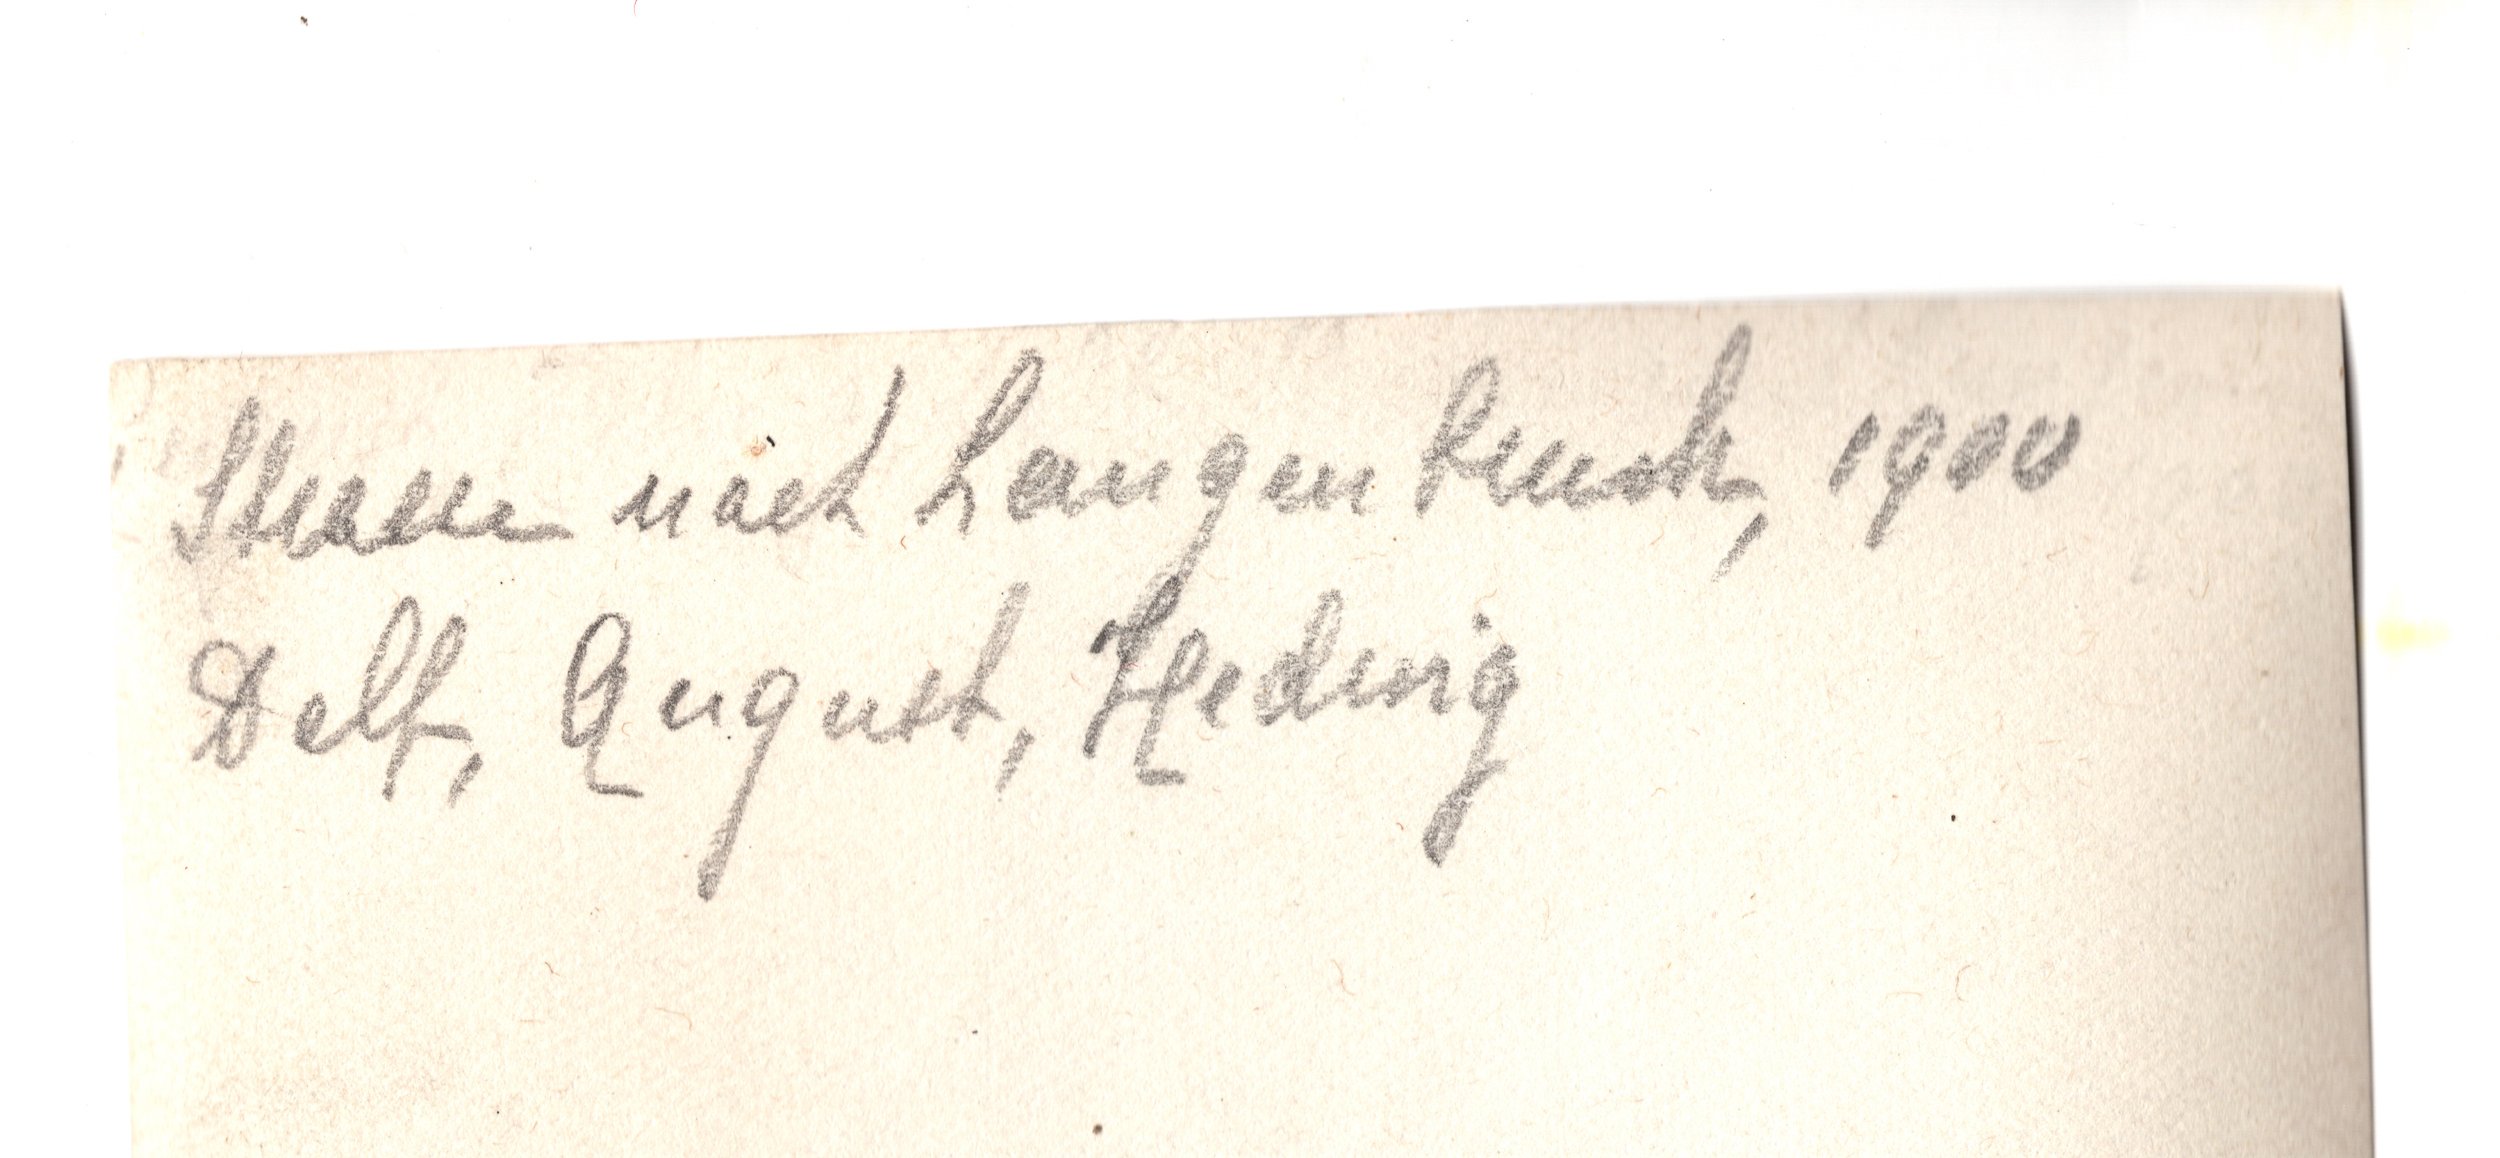 Strasse nach Langenbruck, 1900
Delf, August, Hedwig